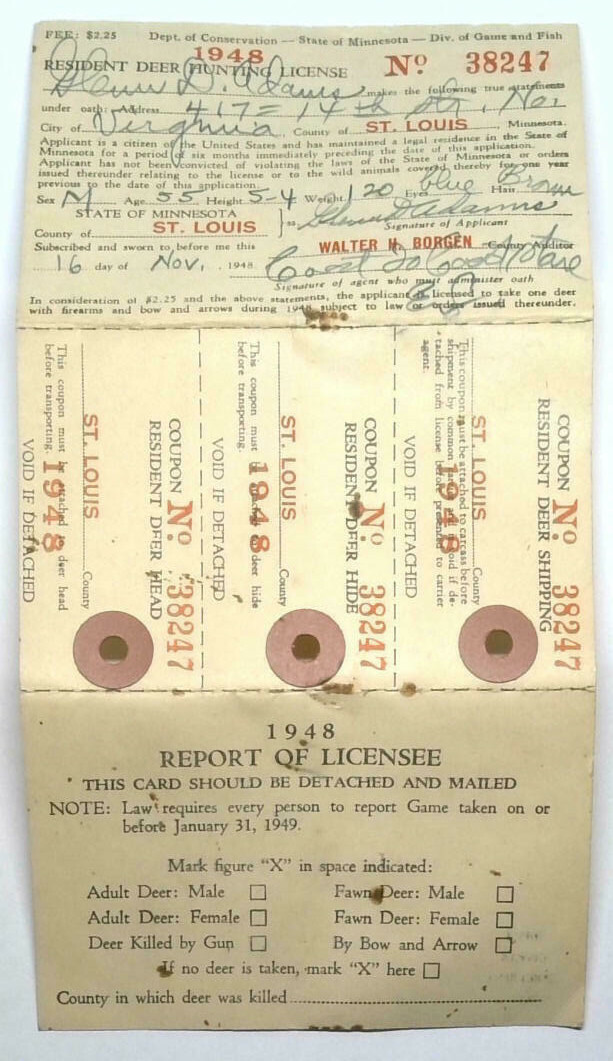 FEE: $2.25 Dept. of Conservation — State of Minnesota — Div. of Game and Fish
1948
RESIDENT DEER HUNTING LICENSE No 38247
Glenn D. Adams makes the following true statements
under oath: Address 417 = 14th Str. No.
City of Virginia, County of ST. LOUIS, Minnesota.
Applicant is a citizen of the United States and has maintained a legal residence in the State of
Minnesota for a period of six months immediately preceding the date of this application.
Applicant has not been convicted of violating the laws of the State of Minnesota or orders
issued thereunder relating to the license or to the wild animals covered thereby for one year
previous to the date of this application.
Sex M Age 55 Height 5-4 Weight 120 Eyes blue Hair Brown
STATE OF MINNESOTA } ss Glenn D Adams
County of ST. LOUIS Signature of Applicant
Subscribed and sworn to before me this WALTER H. BORGEN County Auditor
16 day of Nov., 1948 Coast To Coast Store
Signature of agent who must administer oath
In consideration of $2.25 and the above statements, the applicant is licensed to take one deer
with firearms and bow and arrows during 1948 subject to law or order issued thereunder.
COUPON No. 38247
RESIDENT DEER HEAD
VOID IF DETACHED
ST. LOUIS County
1948
This coupon must be attached to deer head
before transporting.
COUPON No. 38247
RESIDENT DEER HIDE
VOID IF DETACHED
ST. LOUIS County
1948
This coupon must be attached to deer hide
before transporting.
COUPON No. 38247
RESIDENT DEER SHIPPING
VOID IF DETACHED
ST. LOUIS County
1948
This coupon must be attached to carcass before
shipment by common carrier and is void if de-
tached from license before presented to carrier
agent.
1948
REPORT OF LICENSEE
THIS CARD SHOULD BE DETACHED AND MAILED
NOTE: Law requires every person to report Game taken on or
before January 31, 1949.
Mark figure "X" in space indicated:
Adult Deer: Male □ Fawn Deer: Male □
Adult Deer: Female □ Fawn Deer: Female □
Deer Killed by Gun □ By Bow and Arrow □
If no deer is taken, mark "X" here □
County in which deer was killed